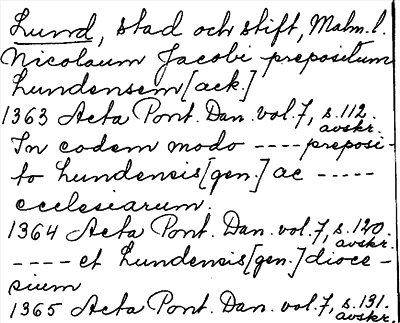 Lund, stad och stift, Malm. l.
Nicolaum Jacobi prepositum
Lundensem [ack.]
1363 Acta Pont. Dan. vol. 7, s. 112.
avskr.
In eodem modo ---- preposi-
to Lundensis [gen.] ac -----
ecclesiarum.
1364 Acta Pont. Dan. vol. 7, s. 120.
avskr.
---- et Lundensis [gen.] dioce-
sium
1365 Acta Pont. Dan. vol. 7, s. 131.
avskr.